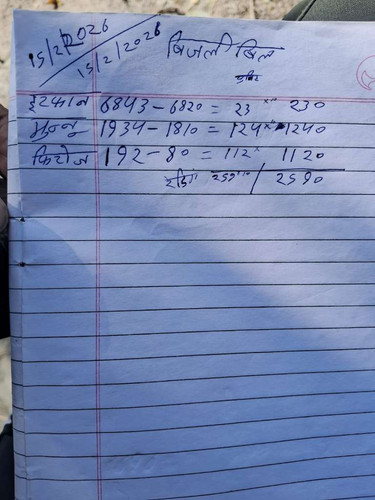 15/2/2026
15/2/2026
बिजली बिल
इरफान 6843-6820 = 23 × 10 230
मुन्नू 1934-1810 = 124×10 1240
फिरोज 192-80 = 112× 1120
2590